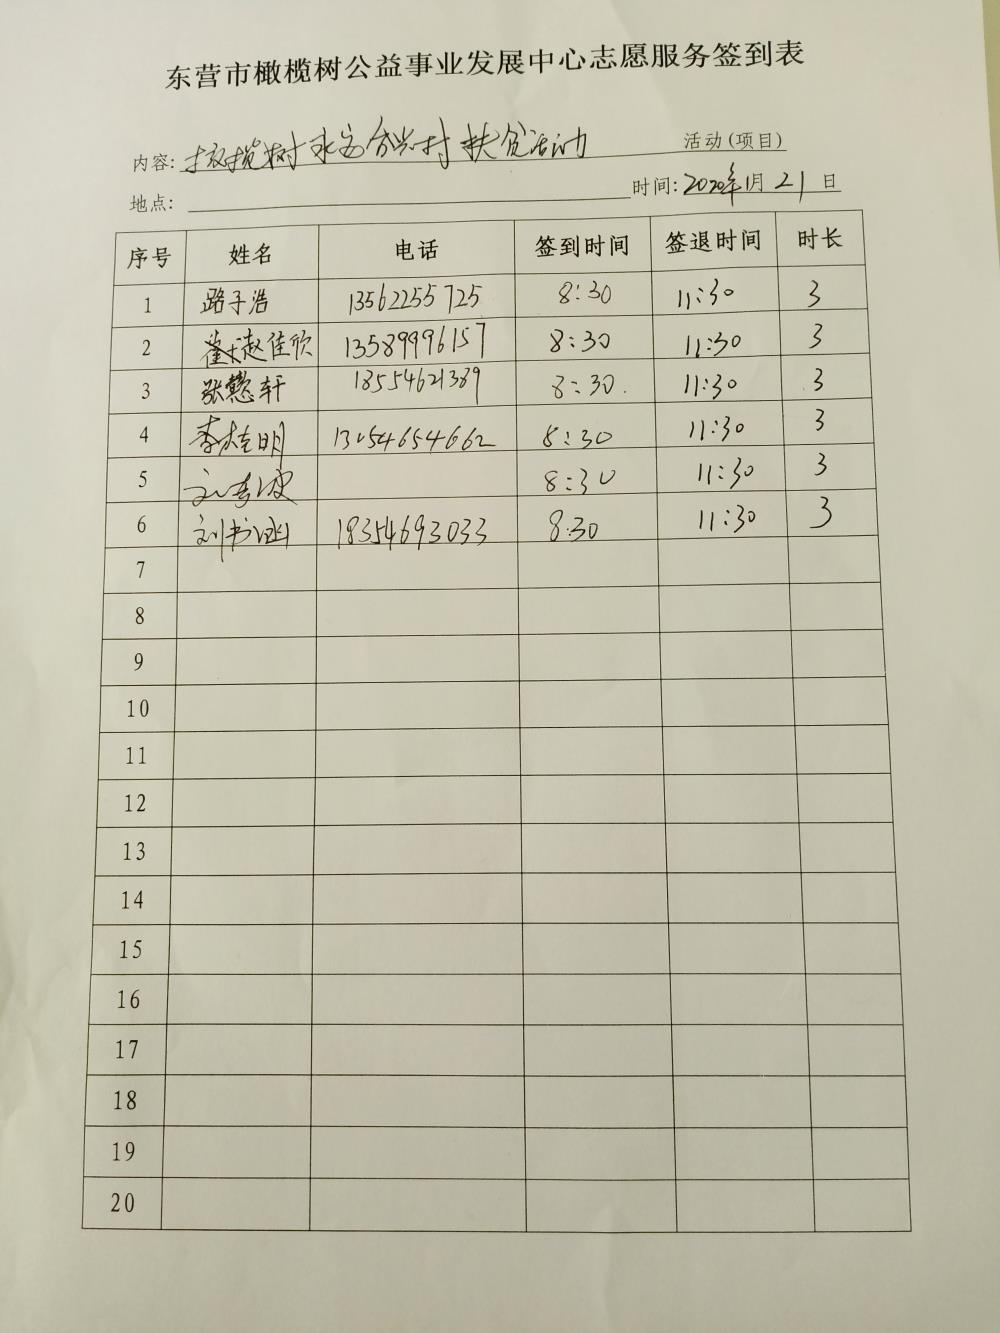 东营市橄榄树公益事业发展中心志愿服务签到表
内容: 橄榄树永安合兴村扶贫活动 活动(项目)
地点: 时间: 2020年1月21日
序号 姓名 电话 签到时间 签退时间 时长
1 路子浩 13562255725 8:30 11:30 3
2 赵佳欣 13589996157 8:30 11:30 3
3 张懿轩 18554621389 8:30. 11:30 3
4 李志明 13054654662 8:30 11:30 3
5 8:30 11:30 3
6 刘书涵 18354693033 8:30 11:30 3
7
8
9
10
11
12
13
14
15
16
17
18
19
20